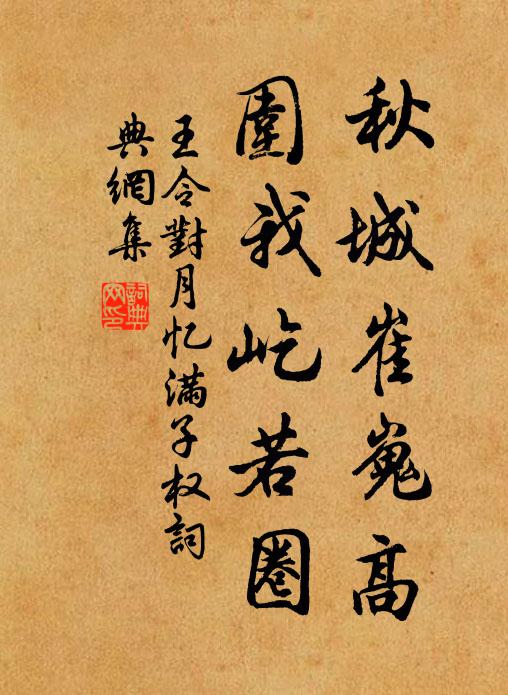 秋城崔嵬高
圍我屹若圈
王令對月忆滿子权詞
典網集
詞典
网印